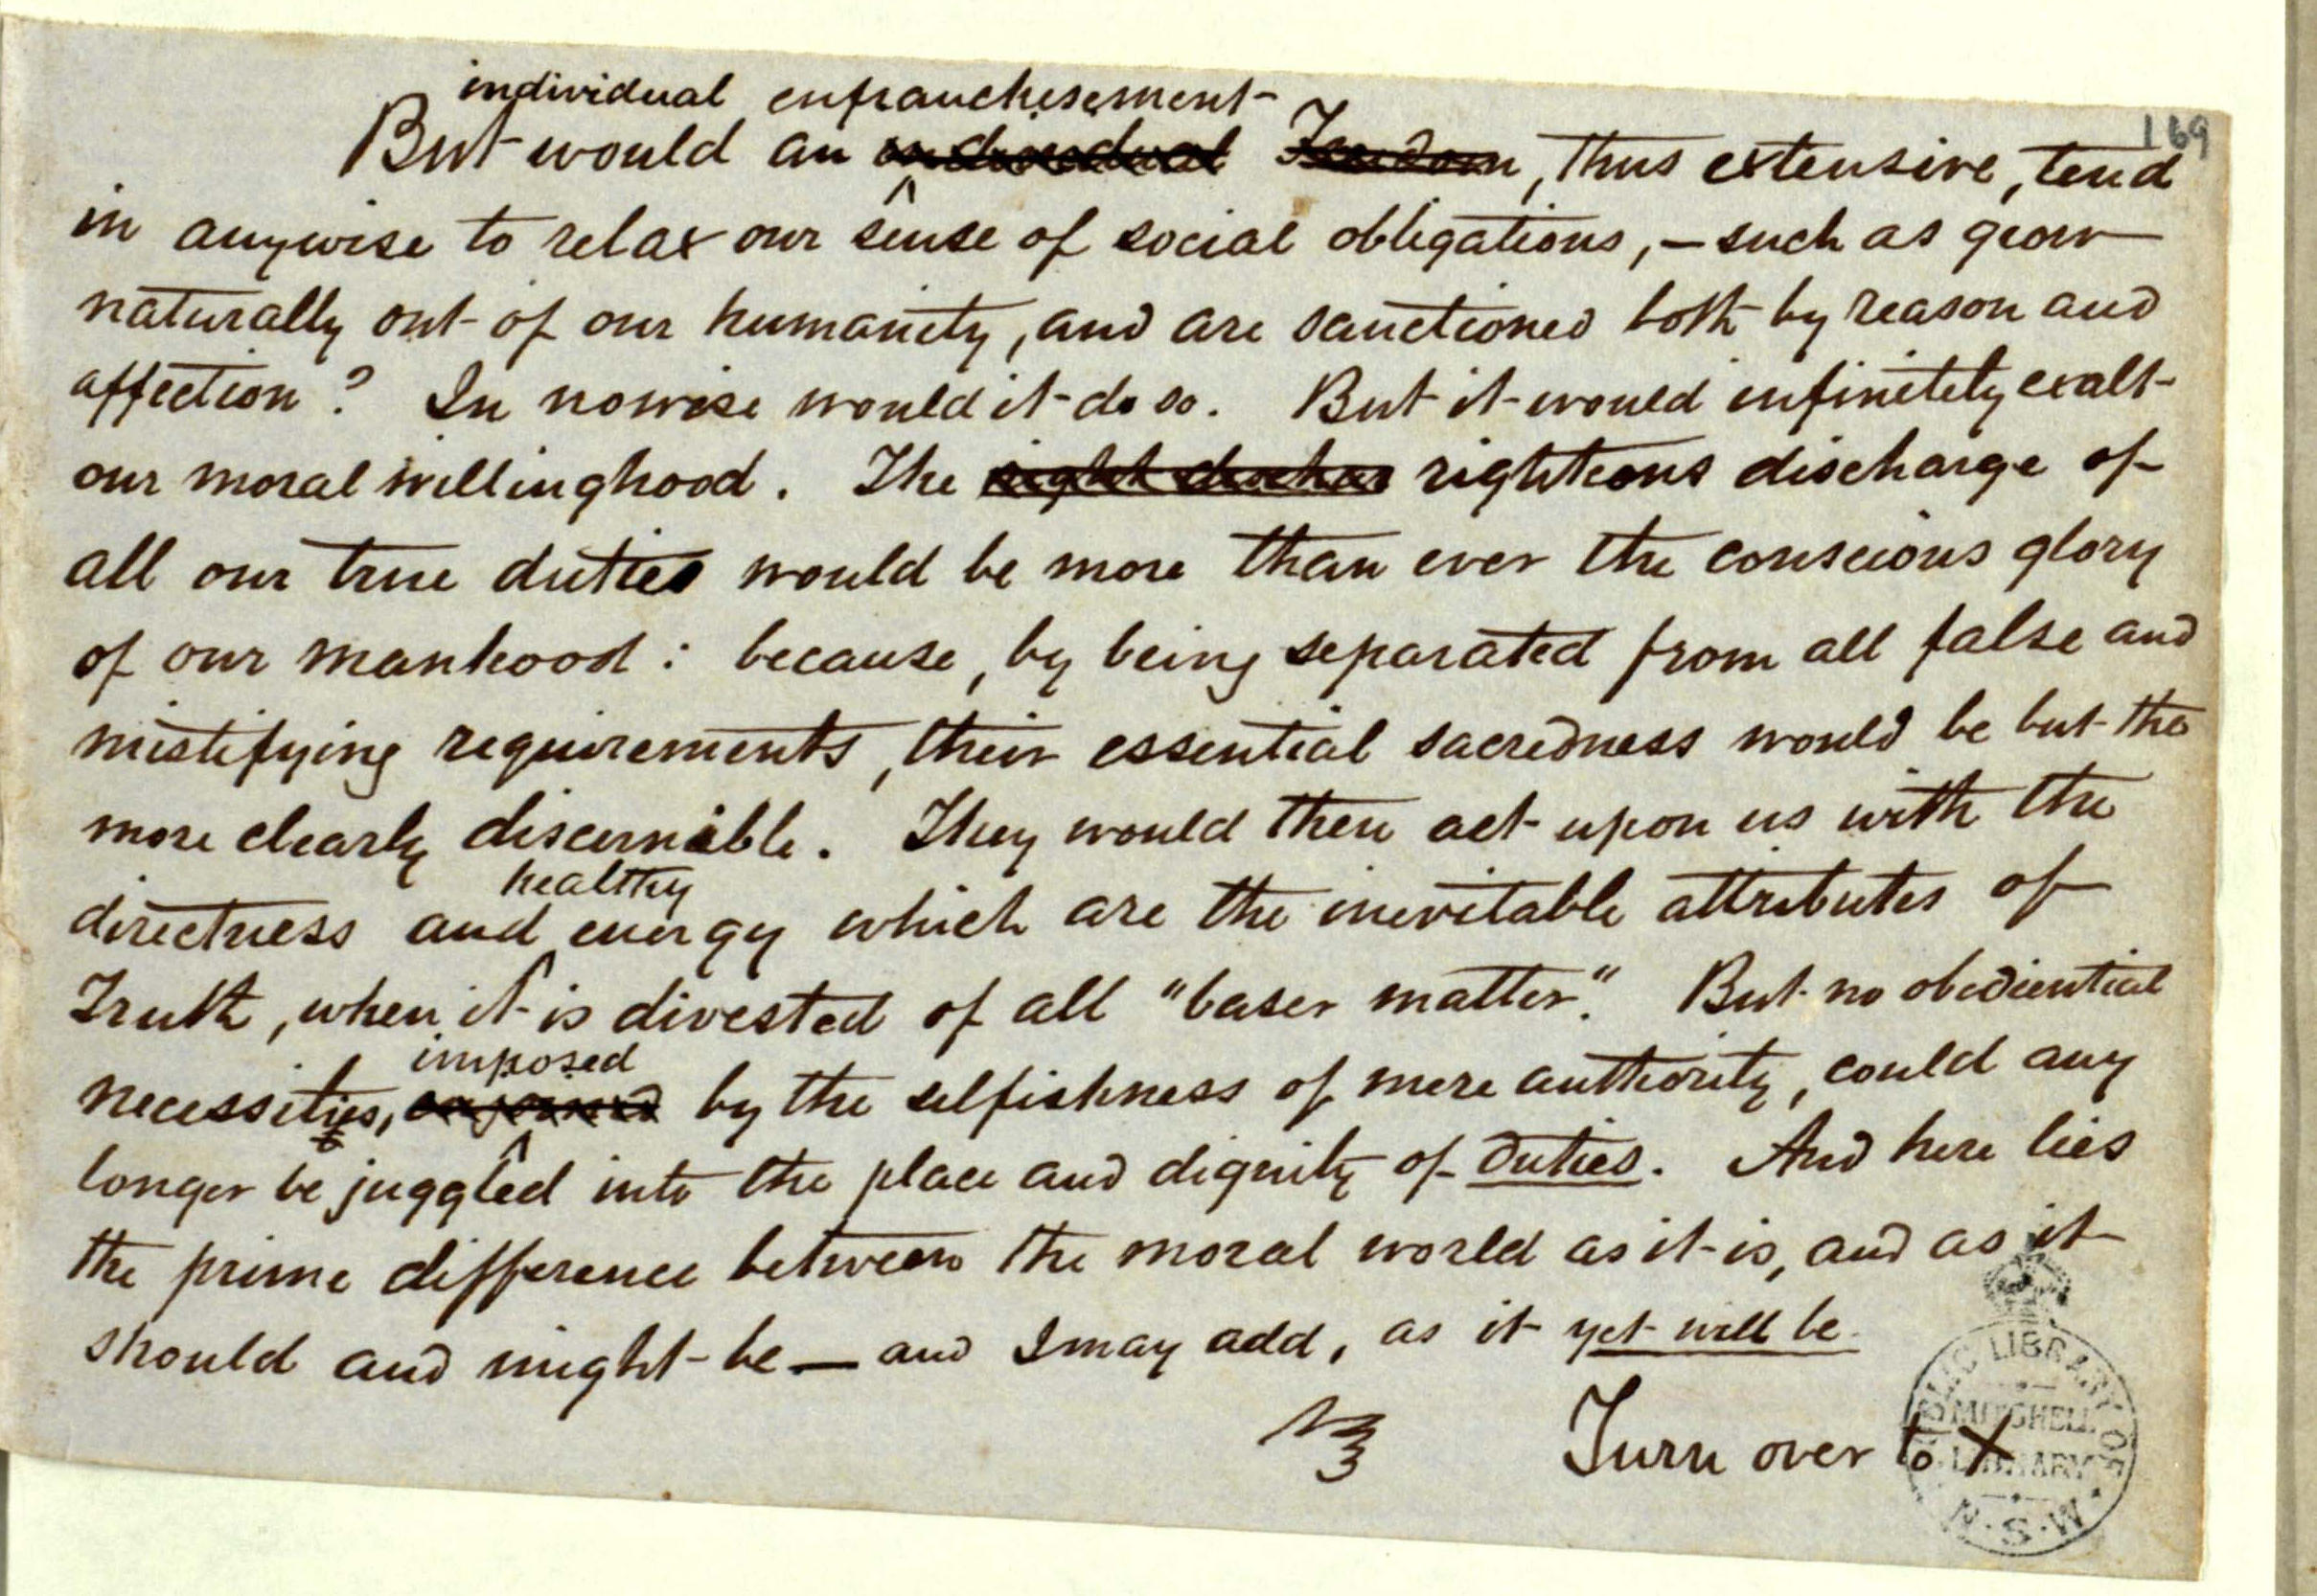 169
individual enfranchisement
But would an individual Freedom, thus extensive, tend
in anywise to relax our sense of social obligations, — such as grow
naturally out of our humanity, and are sanctioned both by reason and
affection? In nowise would it do so. But it would infinitely exalt
our moral willinghood. The right dischar righteous discharge of
all our true duties would be more than ever the conscious glory
of our manhood: because, by being separated from all false and
mistifying requirements, their essential sacredness would be but the
more clearly discernible. They would then act upon us with the
healthy
directness and energy which are the inevitable attributes of
Truth, when it is divested of all "baser matter". But no obediential
imposed
necessities, by the selfishness of mere authority, could any
longer be juggled into the place and dignity of duties. And here lies
the prime difference between the moral world as it is, and as it
should and might be — and I may add, as it yet will be.
Turn over to X
PUBLIC LIBRARY OF
MITCHELL
LIBRARY
N.S.W.